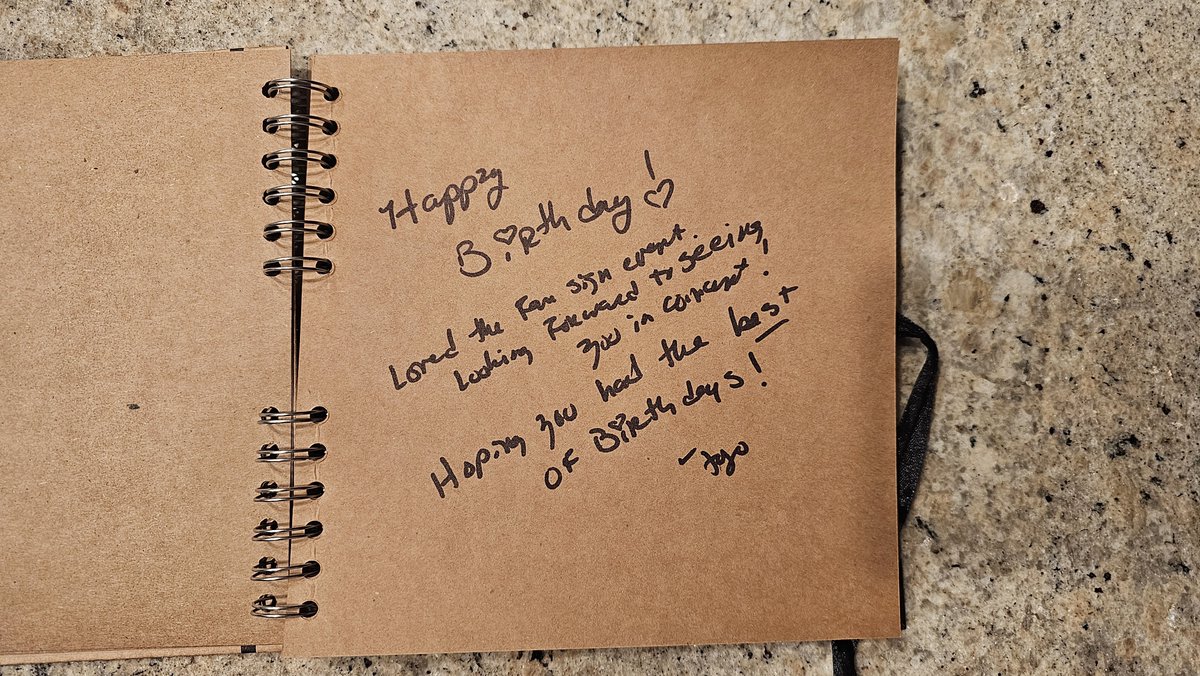 Happy
Birthday! ♡
Loved the Fan sign event.
Looking Forward to seeing
you in concert!
Hoping you had the best
of Birthdays!